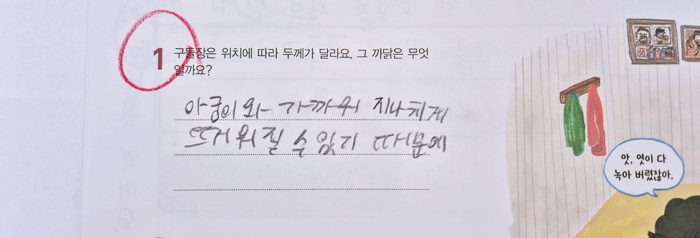 1
구들장은 위치에 따라 두께가 달라요. 그 까닭은 무엇
일까요?
아궁이와 가까워 지나치게
뜨거워질 수 있기 때문에
앗, 엿이 다
녹아 버렸잖아.